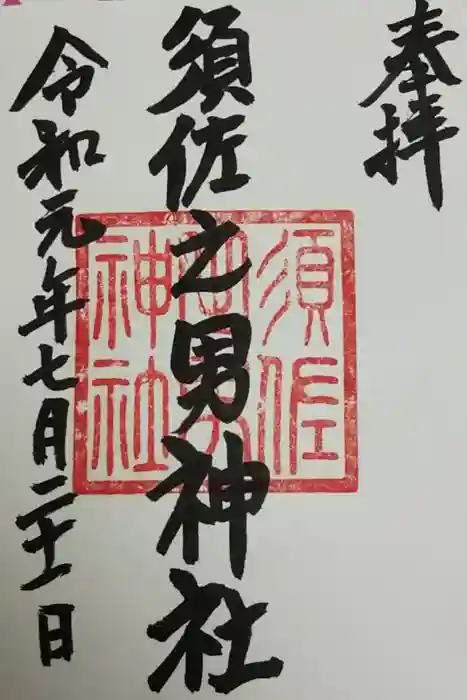 奉拝
須佐之男神社
令和元年七月二十一日
須佐
神社